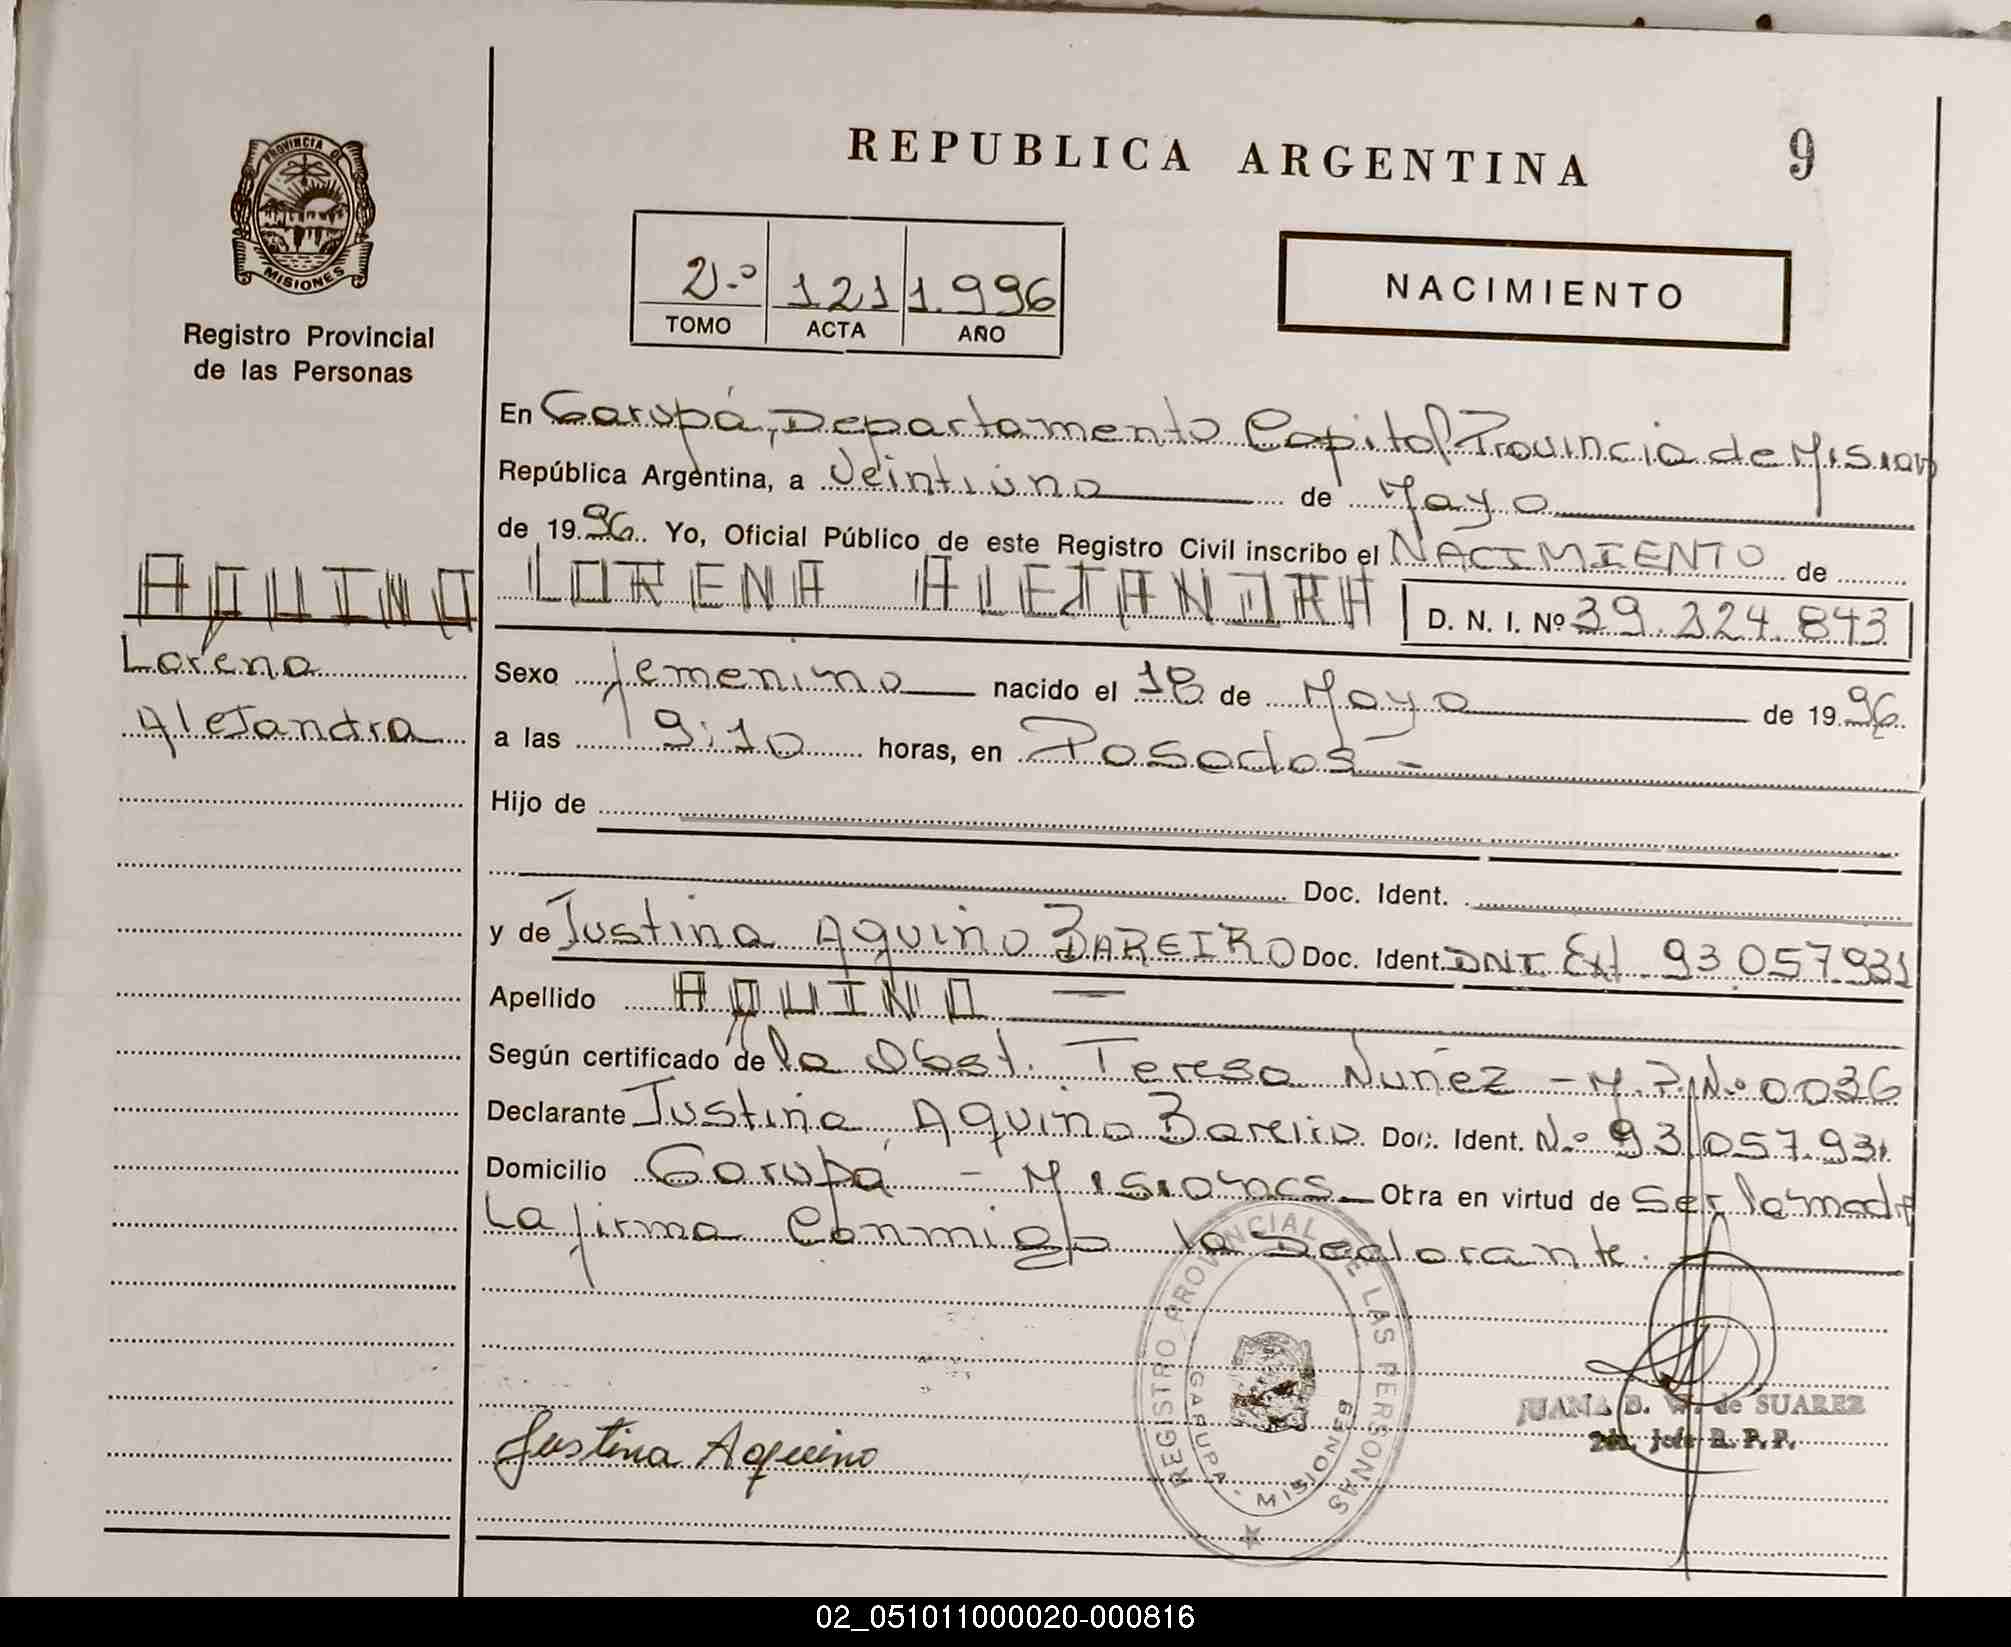 REPUBLICA ARGENTINA
9
PROVINCIA DE
MISIONES
Registro Provincial
de las Personas
2º 121 1.996
TOMO ACTA AÑO
NACIMIENTO
En Garupá, Departamento Capital Provincia de Misiones
República Argentina, a Veintiuno de Mayo
de 1996. Yo, Oficial Público de este Registro Civil inscribo el NACIMIENTO de
AQUINO
Lorena
Alejandra
LORENA ALEJANDRA
D. N. I. Nº 39.224.843
Sexo femenino nacido el 18 de Mayo de 1996.
a las 9:10 horas, en Posadas -
Hijo de
Doc. Ident.
y de Justina Aquino BAREIRO Doc. Ident. DNI. Ext 93 057.931
Apellido AQUINO —
Según certificado de la Obst. Teresa Nuñez - M.P. Nº 0036
Declarante Justina Aquino Bareiro Doc. Ident. Nº 93.057.931
Domicilio Garupá - Misiones Obra en virtud de Ser la madre
La firma Conmigo la Declarante.
REGISTRO PROVINCIAL DE LAS PERSONAS
GARUPA - MISIONES
Justina Aquino
JUANA B. de SUAREZ
2da. Jefe R. P. P.
02_051011000020-000816